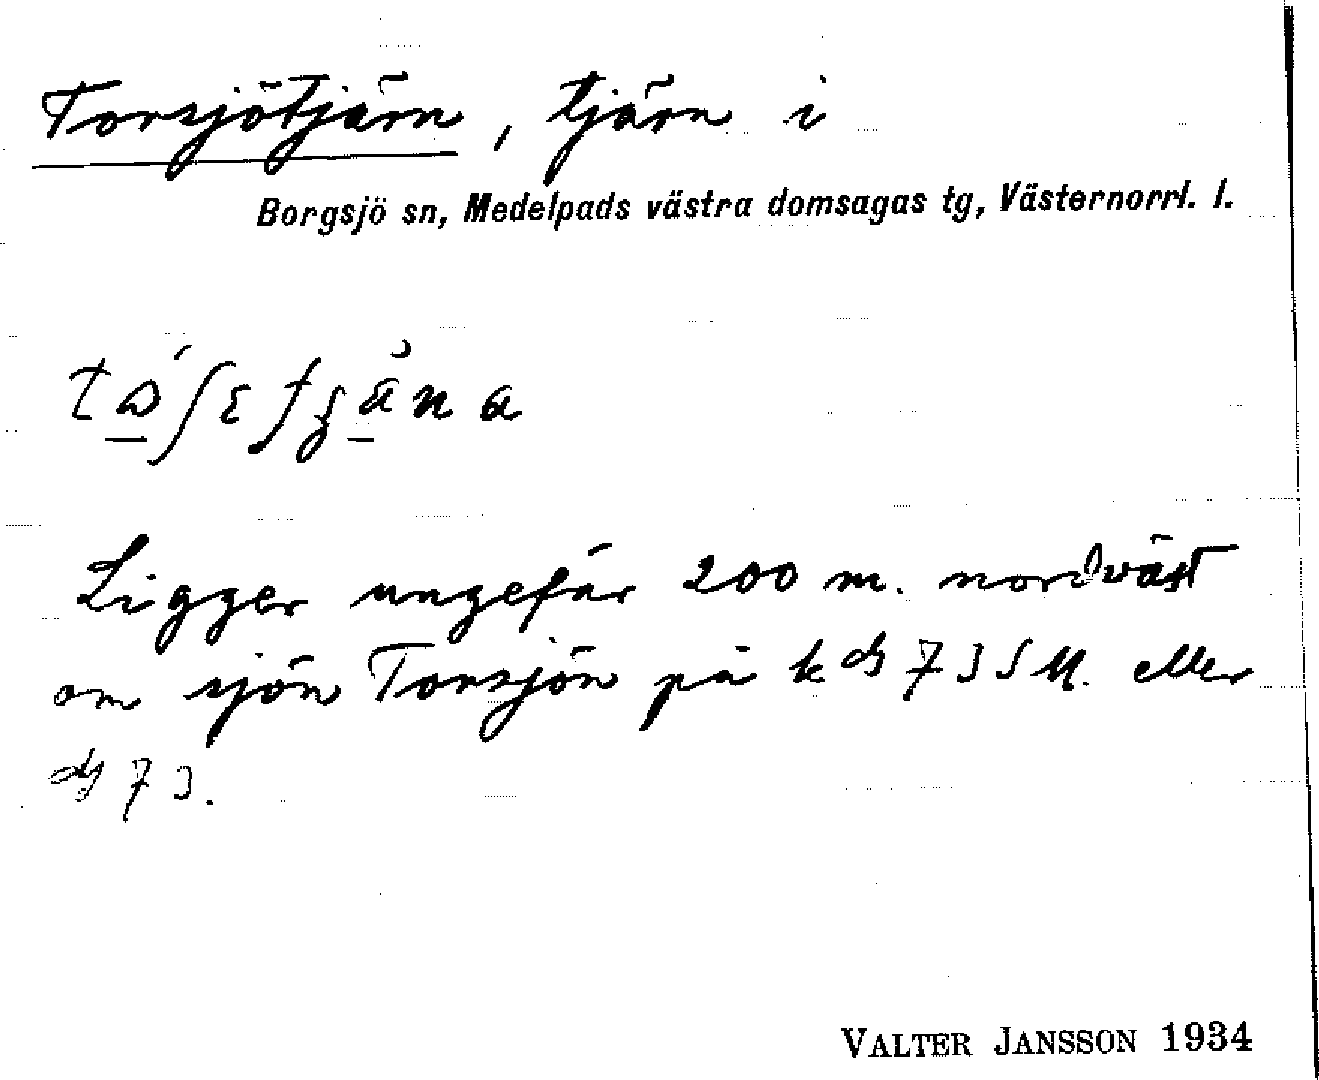 Torsjötjärn, tjärn i
Borgsjö sn, Medelpads västra domsagas tg, Västernorrl. l.
Ligger ungefär 200 m. nordväst
om sjön Torsjön på k
VALTER JANSSON 1934